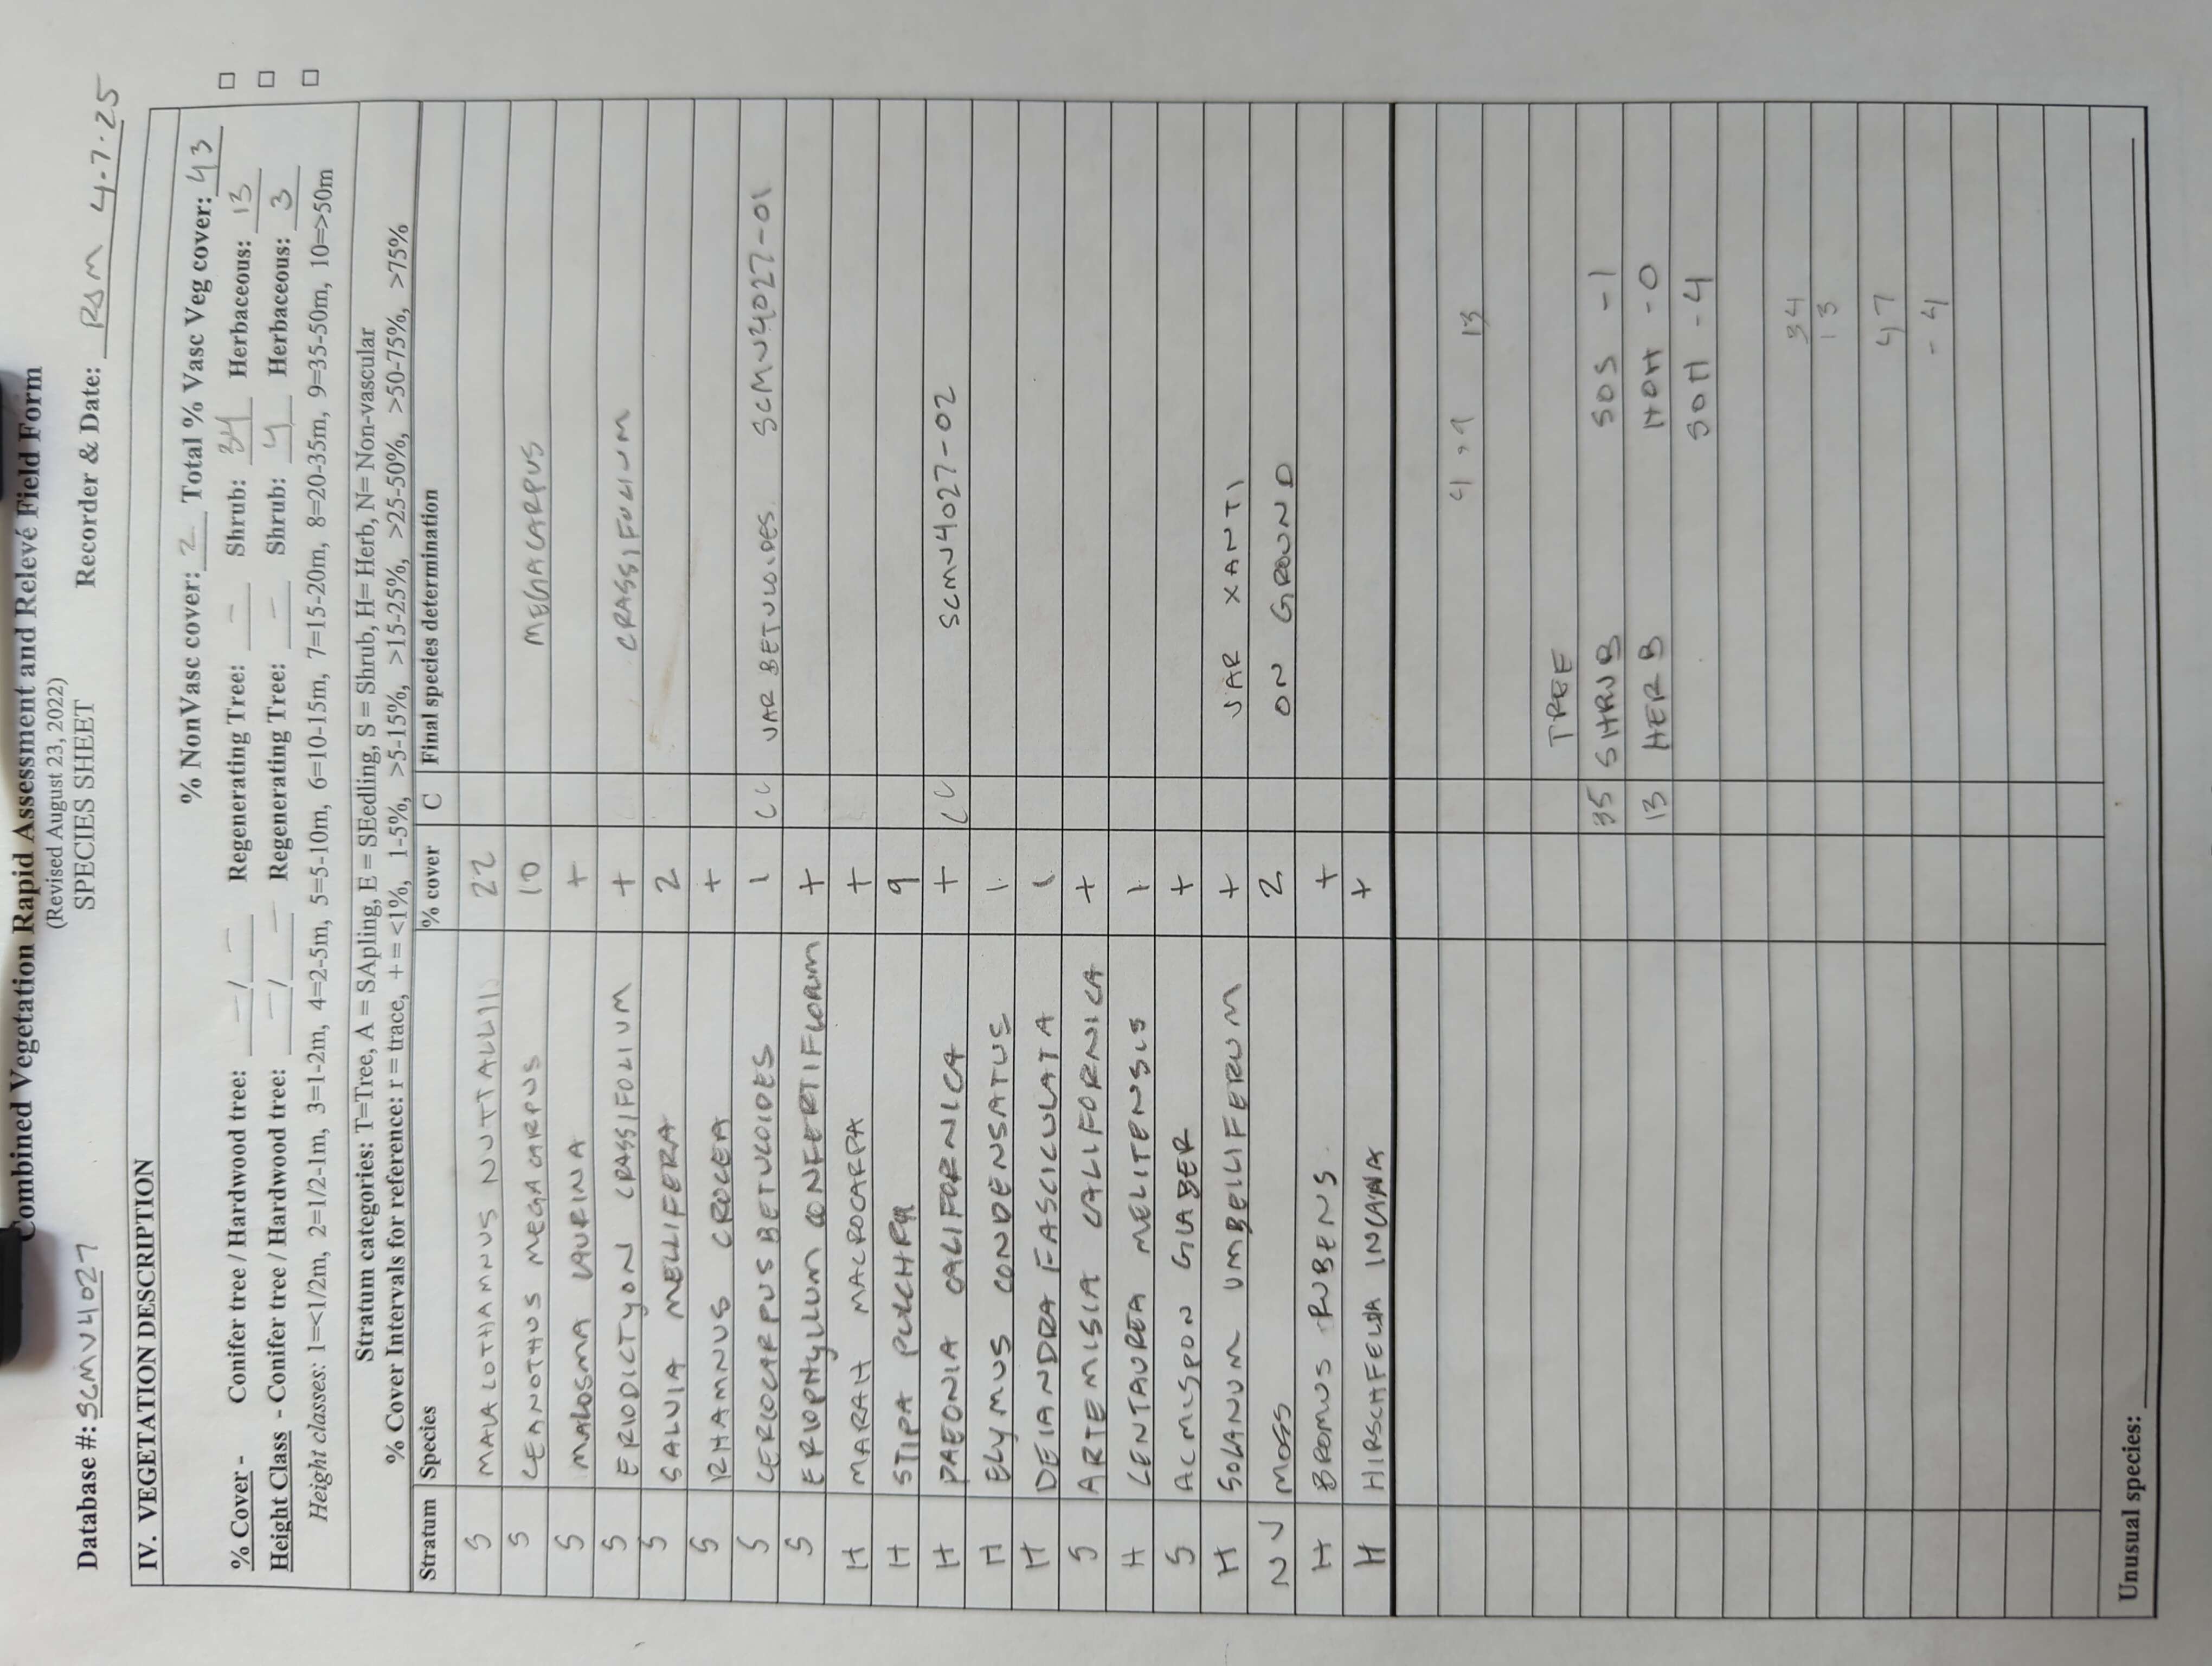 Combined Vegetation Rapid Assessment and Relevé Field Form
(Revised August 23, 2022)
SPECIES SHEET
Database #: SCMV4027 Recorder & Date: RSM 4.7.25
IV. VEGETATION DESCRIPTION
% NonVasc cover: 2 Total % Vasc Veg cover: 43
% Cover - Conifer tree / Hardwood tree: - / - Regenerating Tree: - Shrub: 34 Herbaceous: 13
Height Class - Conifer tree / Hardwood tree: - / - Regenerating Tree: - Shrub: 4 Herbaceous: 3
Height classes: 1=<1/2m, 2=1/2-1m, 3=1-2m, 4=2-5m, 5=5-10m, 6=10-15m, 7=15-20m, 8=20-35m, 9=35-50m, 10=>50m
Stratum categories: T=Tree, A = SApling, E = SEedling, S = Shrub, H= Herb, N= Non-vascular
% Cover Intervals for reference: r = trace, + = <1%, 1-5%, >5-15%, >15-25%, >25-50%, >50-75%, >75%
Stratum Species % cover C Final species determination
S MALACOTHAMNUS NUTTALLII 22
S CEANOTHUS MEGACARPUS 10 MEGACARPUS
S MALOSMA LAURINA +
S ERIODICTYON CRASSIFOLIUM + CRASSIFOLIUM
S SALVIA MELLIFERA 2
S RHAMNUS CROCEA +
S CERCOCARPUS BETULOIDES 1 CC VAR BETULOIDES SCMV4027-01
S ERIOPHYLLUM CONFERTIFLORUM +
H MARAH MACROCARPA +
H STIPA PULCHRA 9
H PAEONIA CALIFORNICA + CC SCMV4027-02
H ELYMUS CONDENSATUS 1
H DEIANDRA FASCICULATA 1
S ARTEMISIA CALIFORNICA +
H CENTAUREA MELITENSIS 1
S ACMISPON GLABER +
H SOLANUM UMBELLIFERUM + VAR XANTI
NV MOSS 2 ON GROUND
H BROMUS RUBENS +
H HIRSCHFELDIA INCANA +
13
TREE
35 SHRUB SOS -1
13 HERB HOH -0
SOH -4
34
13
47
-4
Unusual species: